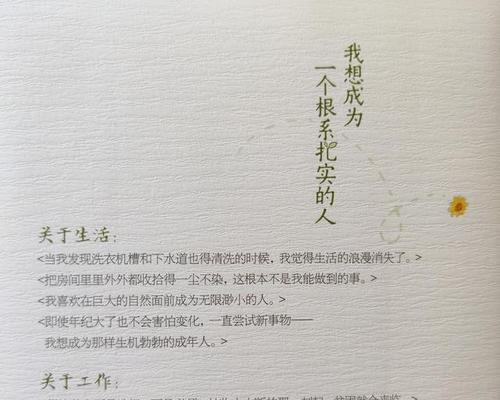 我想成为
一个根系扎实的人
关于生活：
<当我发现洗衣机槽和下水道也得清洗的时候，我觉得生活的浪漫消失了。>
<把房间里里外外都收拾得一尘不染，这根本不是我能做到的事。>
<我喜欢在巨大的自然面前成为无限渺小的人。>
<即使年纪大了也不会害怕变化，一直尝试新事物——
我想成为那样生机勃勃的成年人。>
关于工作：